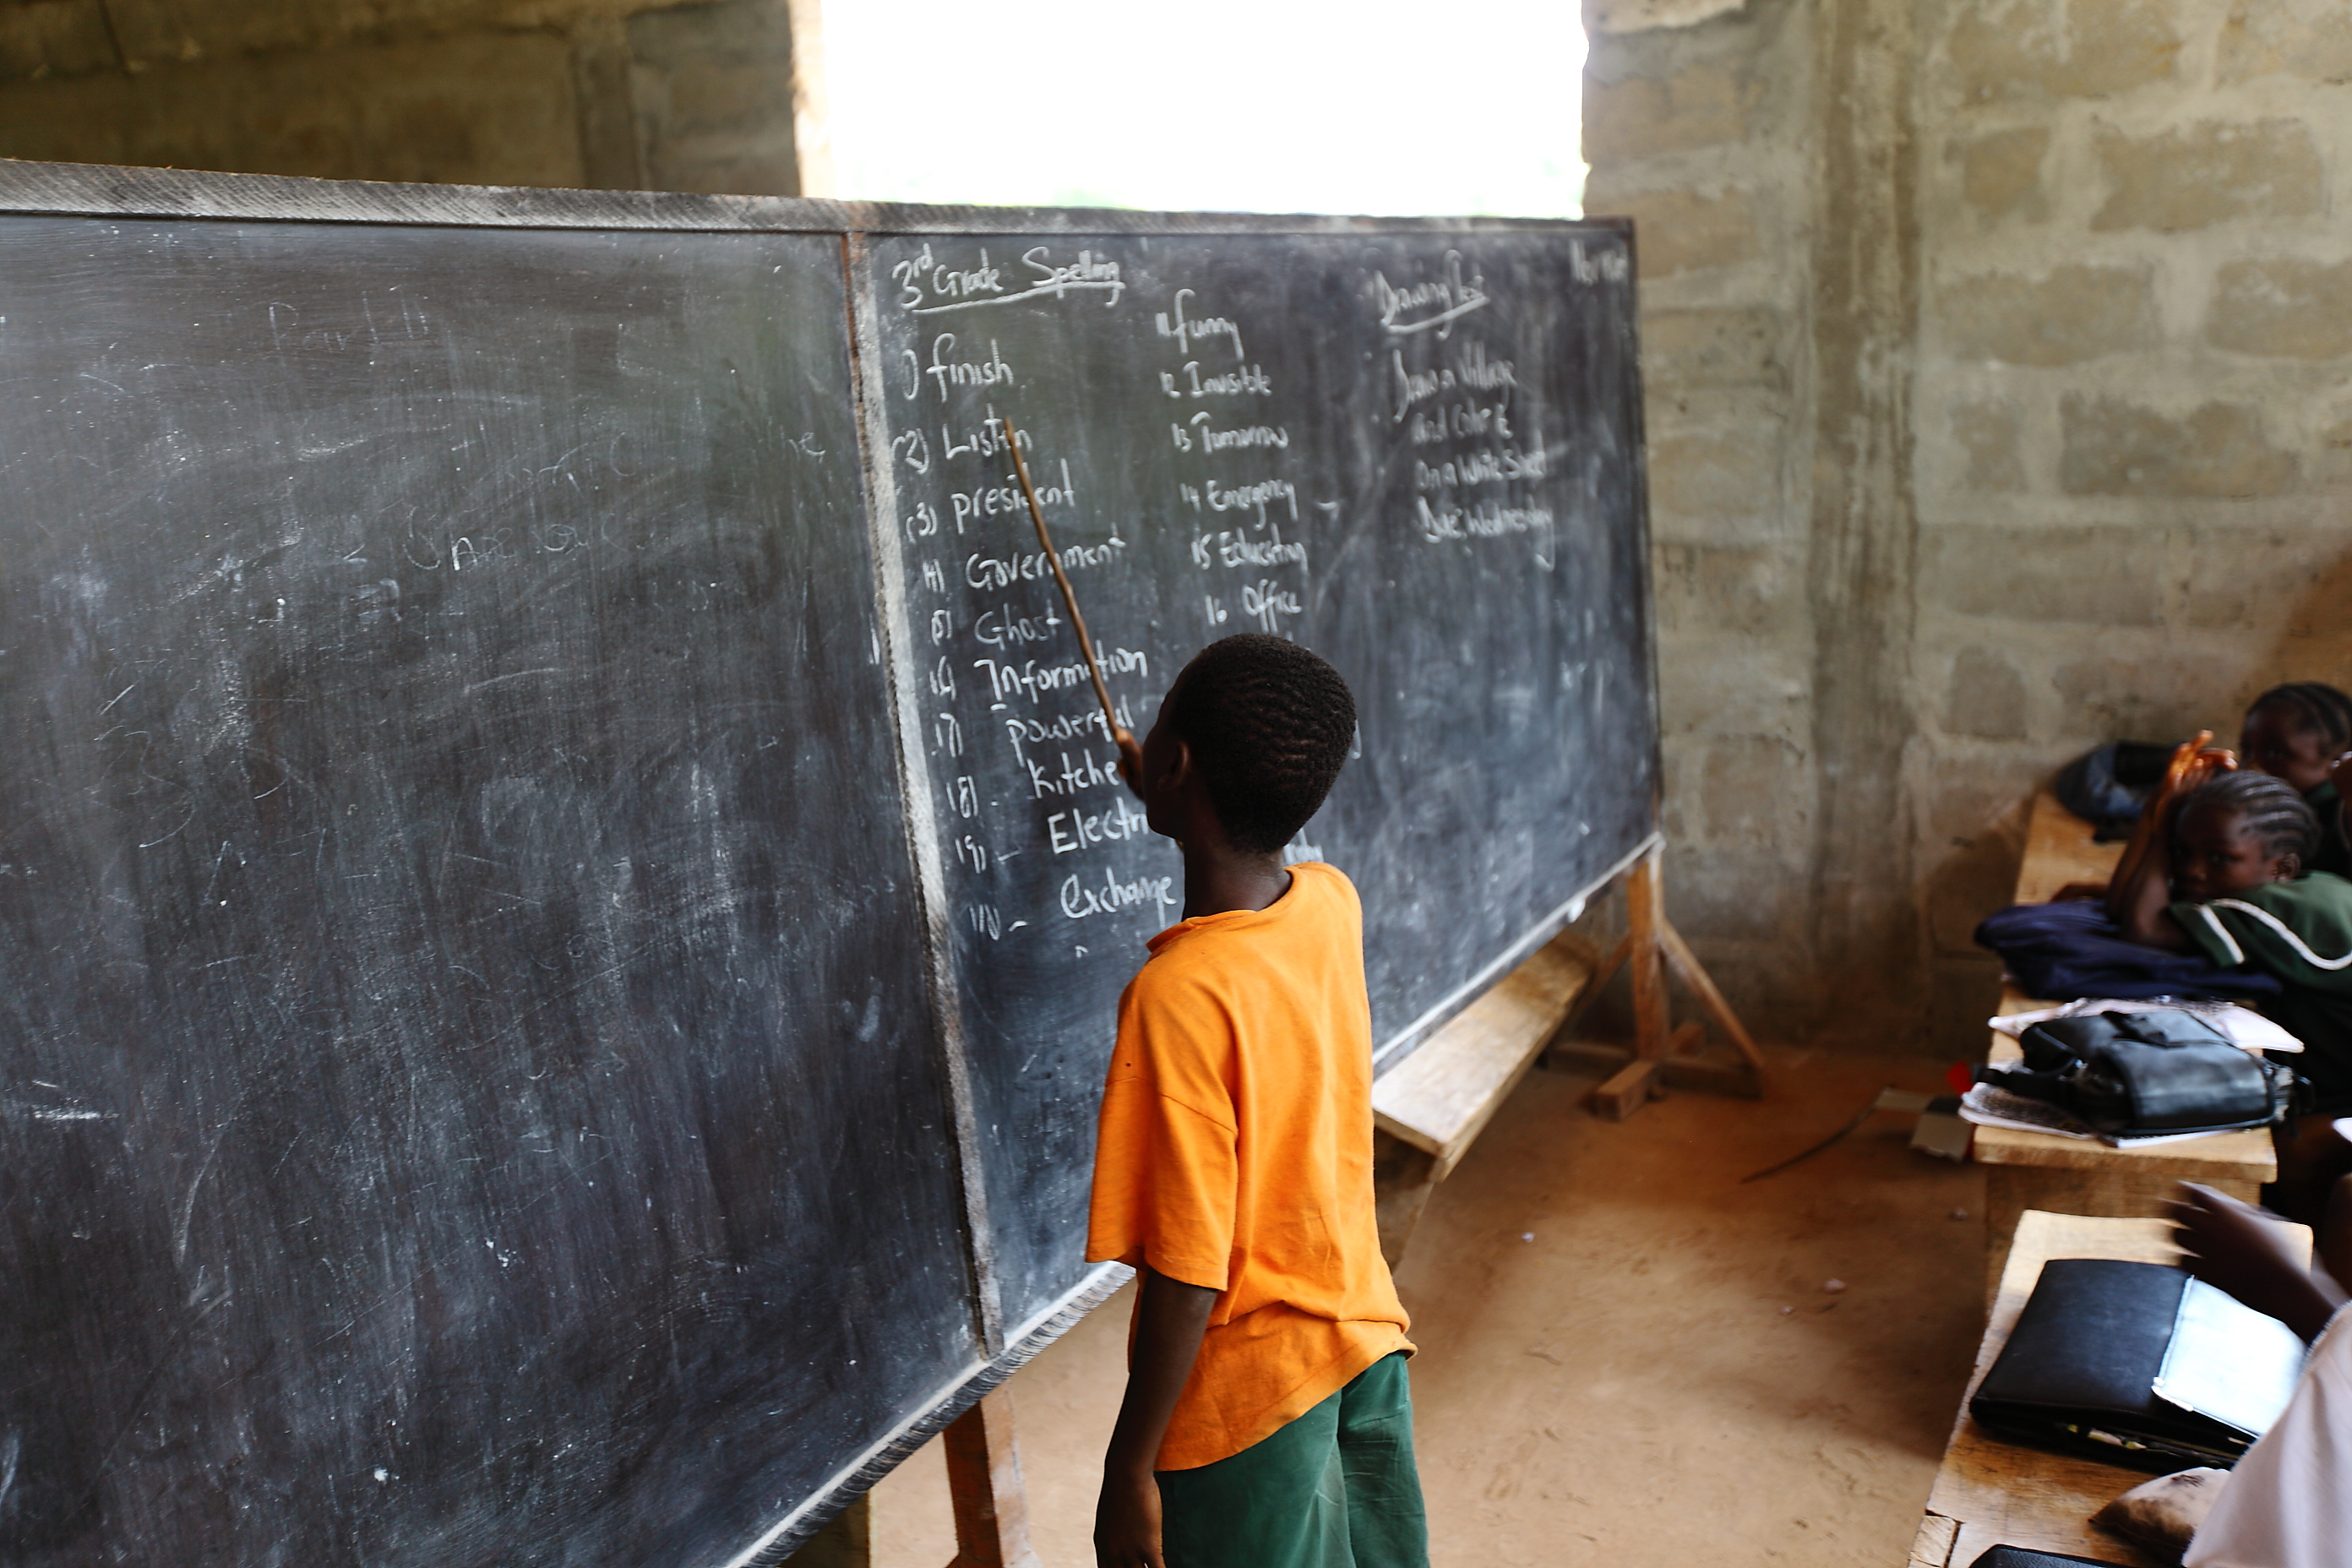 3rd Grade Spelling
1) finish
(2) Listen
(3) president
(4) Government
(5) Ghost
(6) Information
(7) powerful
(8) - Kitche
(9) - Electri
(10) - exchange
11 funny
12 Invisible
13 Tomorrow
14 Emergency
15
16 Office
Drawing Test
Draw a Village
and Color it
on a White Sheet
Date: Wednesday